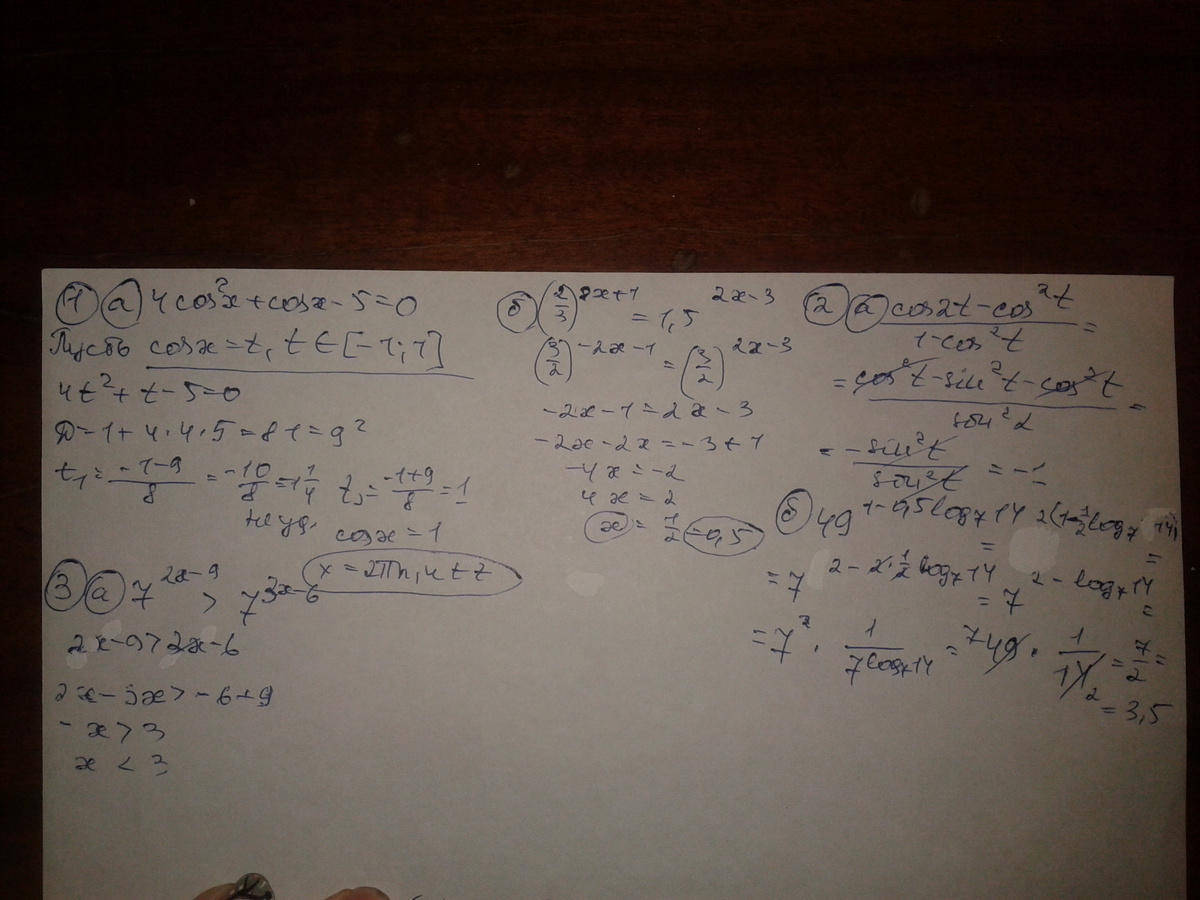 1 а) 4cos²x + cosx - 5 = 0
Пусть cosx = t, t ∈ [-1; 1]
4t² + t - 5 = 0
D = 1 + 4·4·5 = 81 = 9²
t₁ = (-1-9)/8 = -10/8 = -1 1/4 t₂ = (-1+9)/8 = 1
не уд.
cosx = 1
x = 2πn, n ∈ z
3 а) 7^(2x-9) > 7^(3x-6)
2x-9 > 3x-6
2x - 3x > -6 + 9
-x > 3
x < 3
б) (2/3)^(2x+1) = 1,5^(2x-3)
(3/2)^(-2x-1) = (3/2)^(2x-3)
-2x-1 = 2x-3
-2x-2x = -3+1
-4x = -2
4x = 2
x = 1/2 = 0,5
2 а) (cos2t - cos²t)/(1-cos²t) =
= (cos²t - sin²t - cos²t)/(sin²2) =
= (-sin²t)/(sin²t) = -1
б) 49^(1-0,5log₇14) = 7^(2(1-1/2 log₇14)) =
= 7^(2-2·1/2 log₇14) = 7^(2-log₇14) =
= 7² · 1/(7^(log₇14)) = 49 · 1/14 = 7/2 =
= 3,5